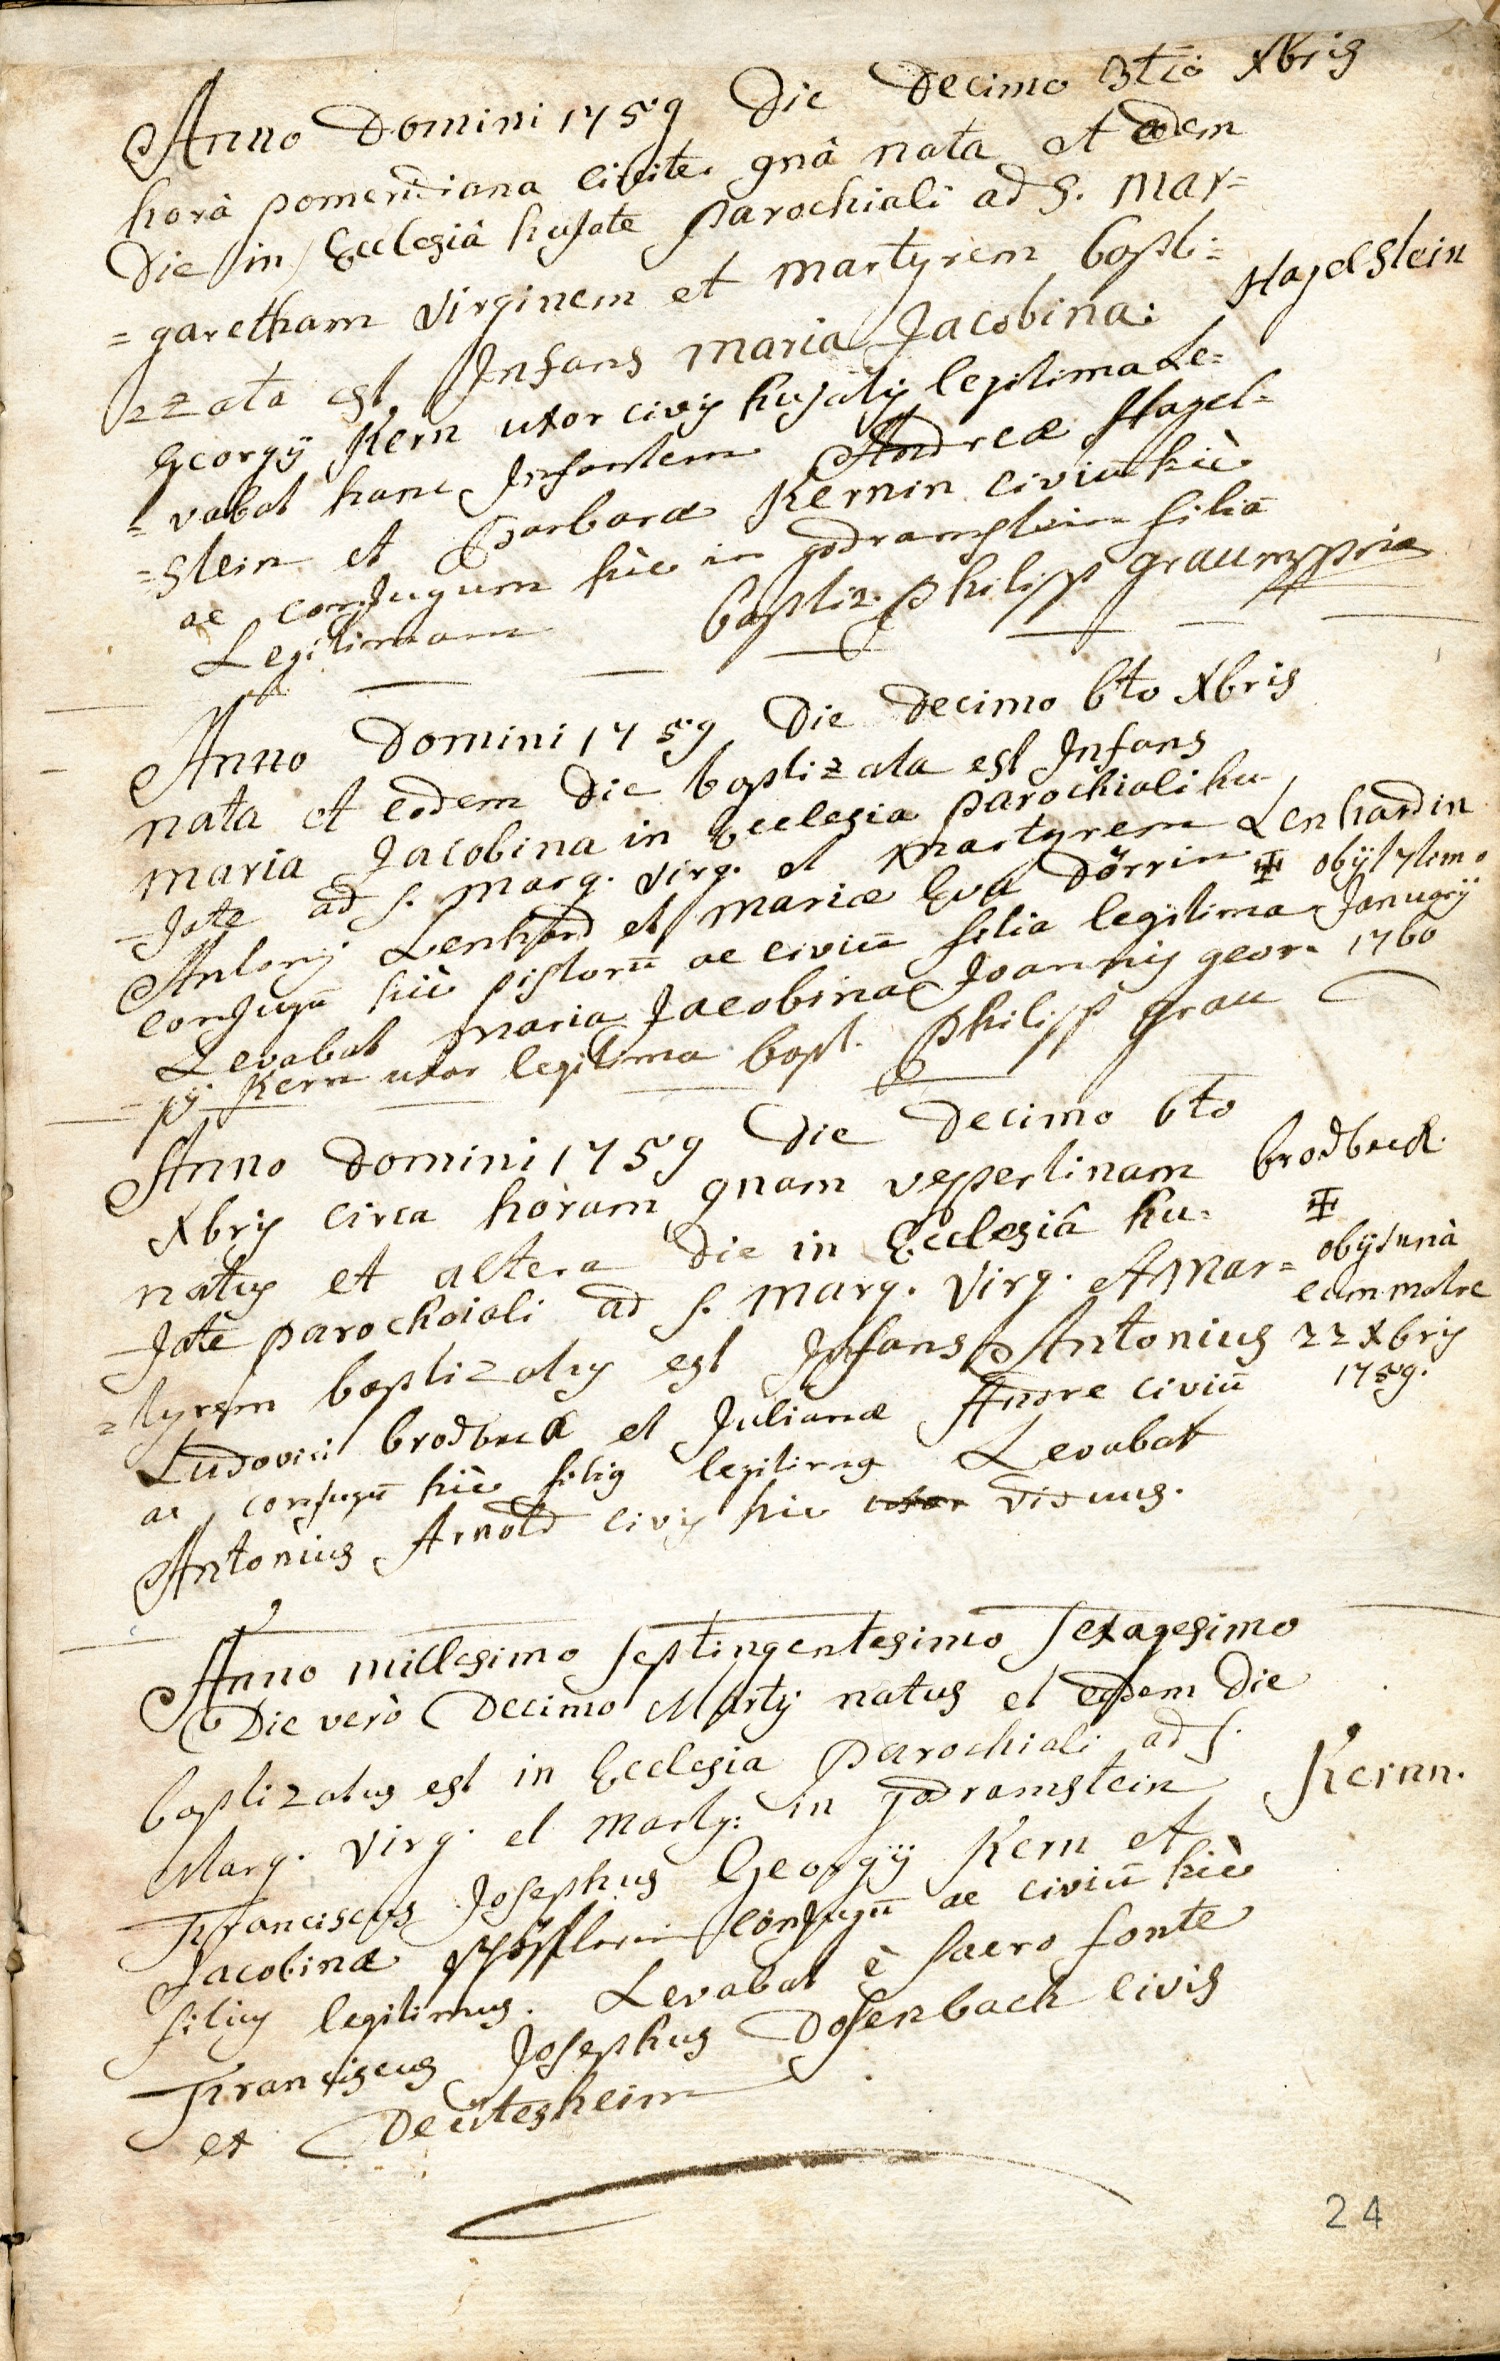 Anno Domini 1759 Die Decimo 3tio Xbris
horâ pomeridiana circite. gnâ nata et eodem
Die in Ecclesiâ hujate parochiali ad S. Mar=
=garetham Virginem et martyrem bapti=
=zata est Infans maria Jacobina:
Hagelstein
Georgÿ Kern uxor civis hujatis legitima Le=
=vabat hanc Infantem Andreæ Hagel=
=stein et Barbaræ Kernin civiũ hìc
ac conjugum hic in godramstein filiã
Legitimam baptiz. philipp grau mppria
Anno Domini 1759 Die Decimo 6to Xbris
nata et eodem Die baptizata est Infans
maria Jacobina in Ecclesia parochiali hu-
-jate ad s. marg. virg. et martyrem
Lenhardin
Antony Lenhard et mariæ Eva Dörrin
obÿt 7timo
conjugũ hìc pistorũ ac civiũ filia legitima
Januarÿ
Levabat maria Jacobina Joannis geor=
1760
=gÿ Kern uxor legitima bapt. philipp grau
Anno Domini 1759 Die Decimo 6to
Xbris circa horam gnam vespertinam
brodbeck.
natus et altera Die in Ecclesiâ hu-
-jate parochoiali ad s. marg. virg. et mar=
obÿt unà
cum matre
=tyrem baptizatus est Infans Antonius
22 Xbris
Ludovici brodbeck et Julianæ Andre civiũ
1759.
ac conjugũ hìc filius legitimus Levabat
Antonius Arnold civis hic uxor viduus.
Anno millesimo septingentesimo sexagesimo
Die verò Decimo Martÿ natus et eodem Die
baptizatus est in Ecclesia parochiali ad s.
Marg. virg. et marty: in godramstein
Kernn.
Franciscus Josephus Georgÿ Kern et
Jacobinæ conjugũ ac civiũ hìc
filius legitimus. Levabat è sacro fonte
Franciscus Josephus Dosenbach civis
ex Deütesheim
24